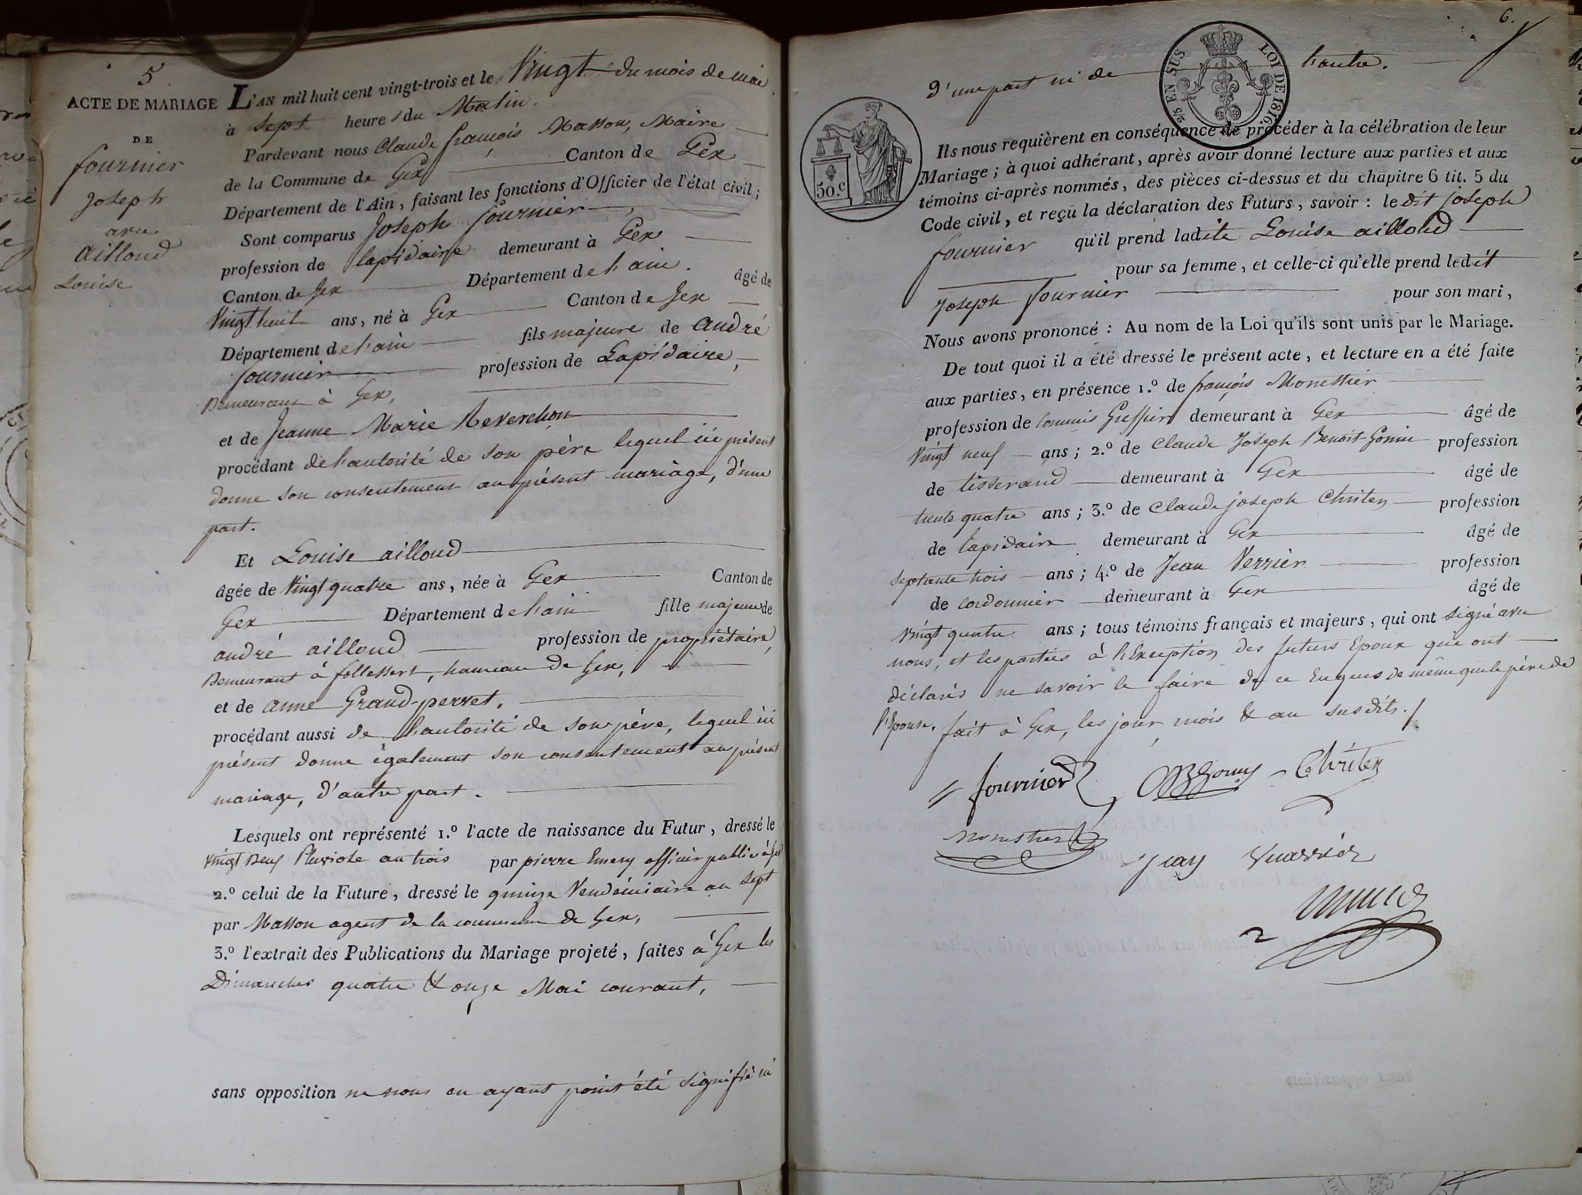 5
ACTE DE MARIAGE
DE
fournier
Joseph
avec
ailloud
Louise
L'AN mil huit cent vingt-trois et le Vingt du mois de mai
à Sept heures du Matin.
Pardevant nous Claude françois Masson, Maire
de la Commune de Gex Canton de Gex
Département de l'Ain, faisant les fonctions d'Officier de l'état civil;
Sont comparus Joseph fournier,
profession de lapidaire demeurant à Gex
Canton de Gex Département de l'ain. âgé de
Vingt huit ans, né à Gex Canton de Gex
Département de l'ain fils majeure de andré
fournier profession de Lapidaire,
Demeurant à Gex,
et de Jeanne Marie Reverchon
procédant de l'autorité de son père lequel ici présent
donne son consentement au présent mariage, d'une
part.
Et Louise ailloud
âgée de Vingt quatre ans, née à Gex Canton de
Gex Département de l'ain fille majeure de
andré ailloud profession de propriétaire,
Demeurant à , hameau de Gex,
et de anne Grand-perret,
procédant aussi de l'autorité de son père, lequel ici
présent donne également son consentement au présent
mariage, d'autre part.
Lesquels ont représenté 1.º l'acte de naissance du Futur, dressé le
Vingt Deux Pluviose an trois par pierre Emery officier public à Gex
2.º celui de la Future, dressé le quinze Vendémiaire an Sept
par Masson agent de la commune de Gex,
3.º l'extrait des Publications du Mariage projeté, faites à Gex les
Dimanches quatre & onze Mai courant,
sans opposition ne nous en ayant point été signifié ni
6.
d'une part ni de l'autre.
2/5 EN SUS
LOI DE 1816.
50.c
Ils nous requièrent en conséquence de procéder à la célébration de leur
Mariage; à quoi adhérant, après avoir donné lecture aux parties et aux
témoins ci-après nommés, des pièces ci-dessus et du chapitre 6 tit. 5 du
Code civil, et reçu la déclaration des Futurs, savoir: le dit Joseph
fournier qu'il prend ladite Louise ailloud
pour sa femme, et celle-ci qu'elle prend ledit
Joseph fournier pour son mari,
Nous avons prononcé: Au nom de la Loi qu'ils sont unis par le Mariage.
De tout quoi il a été dressé le présent acte, et lecture en a été faite
aux parties, en présence 1.º de françois Monestier
profession de Commis Greffier demeurant à Gex âgé de
Vingt neuf ans; 2.º de Claude Joseph Benoit-Gonin profession
de tisserand demeurant à Gex âgé de
trente quatre ans; 3.º de Claude joseph Christen profession
de lapidaire demeurant à Gex âgé de
septante trois ans; 4.º de Jean Verrier profession
de cordonnier demeurant à Gex âgé de
Vingt quatre ans; tous témoins français et majeurs, qui ont signé avec
nous, et les parties à l'Exception des futurs Epoux qui ont
déclarés ne savoir le faire de ce Enquis de même que le père de
l'Epouse. fait à Gex, les jour, mois & an susdits./
fournier Christen
monestier